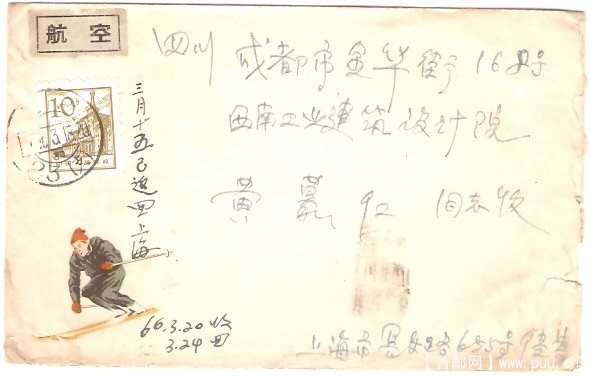 航空
四川 成都市金华街16号
西南工业建筑设计院
10
三月十五已返回上海
黄 红 同志收
66.3.20收
3.24回
上海市 路645号
【普邮网】www.puu.cn